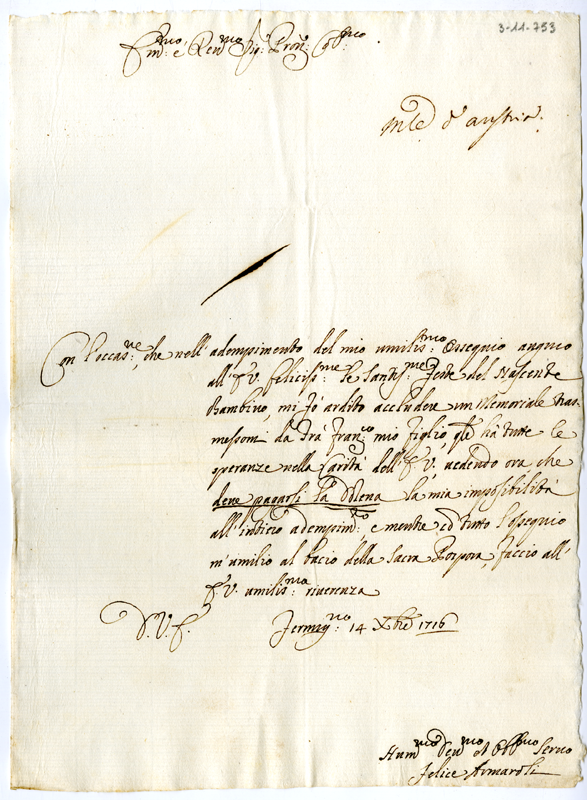 3-11-753
Em:mo e Rev:mo Sig:r Pron: Col:mo
Mte d'
Con l'occas:ne, che nell'adempimento del mio umilis:mo Ossequio auguro
all'E.V. feliciss:me le Santis:me Feste del Nascente
Bambino, mi fò ardito accludere un Memoriale tras=
messomi da Frà Fran:co mio figlio, qle hà tutte le
speranze nella Carità dell'E.V., vedendo ora, che
deve pagarsi la Dozena la mia impossibilità
all'intiero adempim:to, e mentre, cō tutto l'ossequio
m'umilio al bacio della Sacra Porpora, faccio all'
E.V. umilis:ma riverenza
D.V.E. 14 Xbre 1716
Hum:mo Dev:mo et Obb:mo Servo
Felice Armaroli